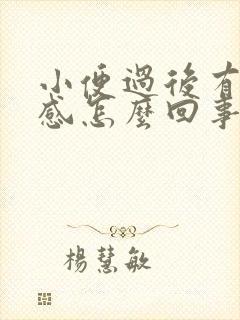 小便過後有
感怎麼回事
楊慧敏